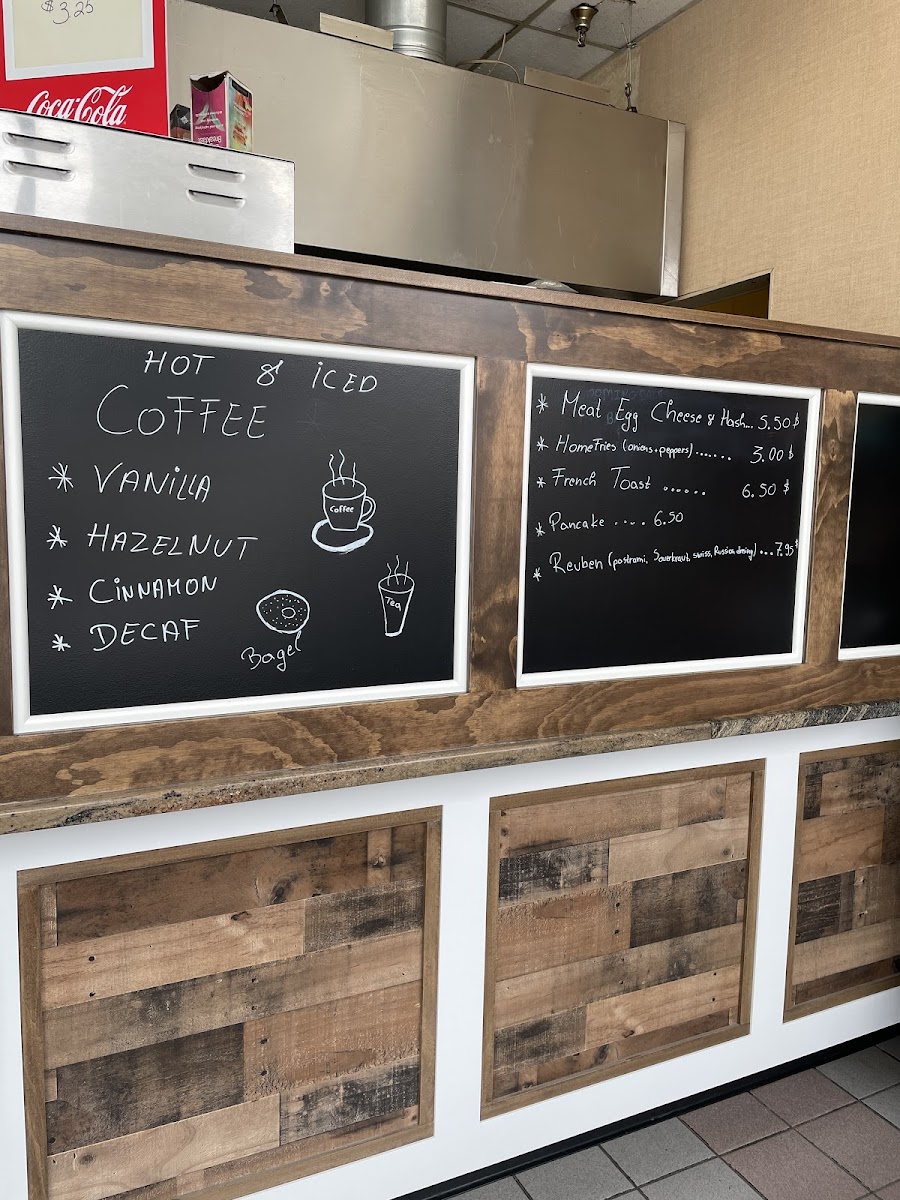 $3.25
Coca-Cola
Breakfast
HOT & iCED
COFFEE
* VANiLLA
* HAZELNUT
* CiNNAMON
* DECAF
Coffee
Tea
Bagel
* Meat Egg Cheese & Hash... 5.50 $
* HomeFries (onions+peppers)....... 3.00 $
* French Toast ...... 6.50 $
* Pancake .... 6.50
* Reuben (pastrami, Sauerkraut, swiss, Russian dresing) ...7.95$